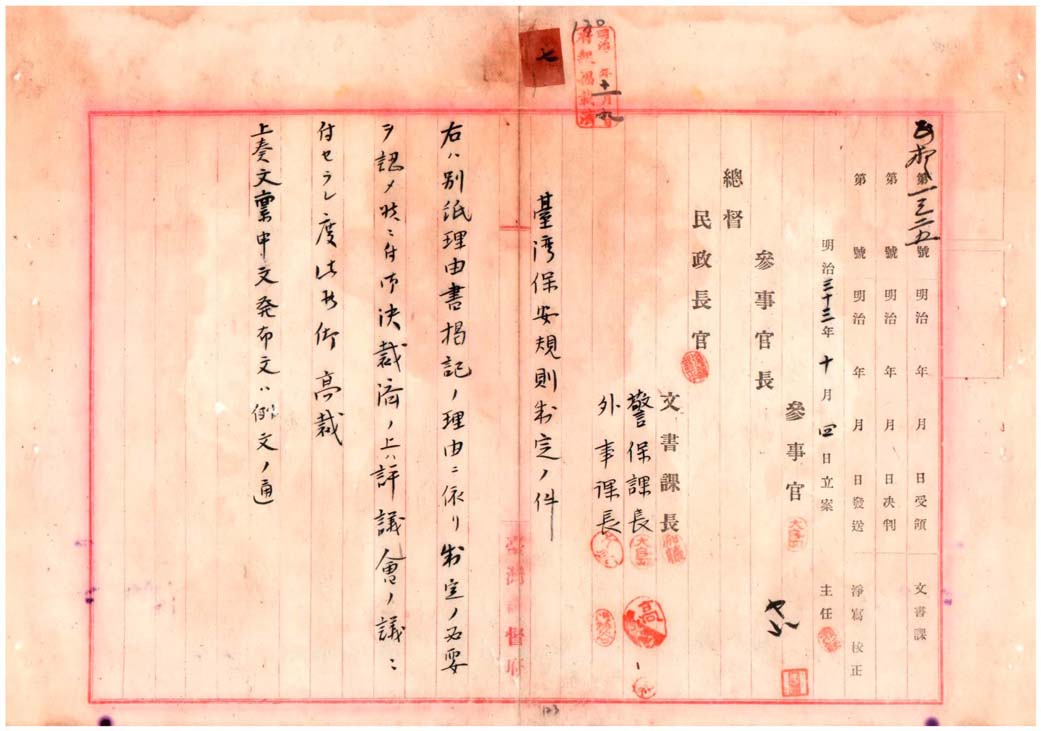 第一三二五號 明治 年 月 日受領 文書課
第 號 明治 年 月 日決判
第 號 明治 年 月 日發送 淨寫 校正
明治三十三年 十月 四日立案 主任
參事官
參事官長
總督
民政長官
文書課長
警保課長
外事課長
臺灣保安規則制定ノ件
右ハ別紙理由書揭記ノ理由ニ依リ制定ノ必要
ヲ認メ候ニ付御決裁濟ノ上ハ評議會ノ議ニ
付セラレ度此段仰高裁
上奏文稟申文発布文ハ例文ノ通
七
明治 年十一月九
府報揭載濟
臺灣總督府
123